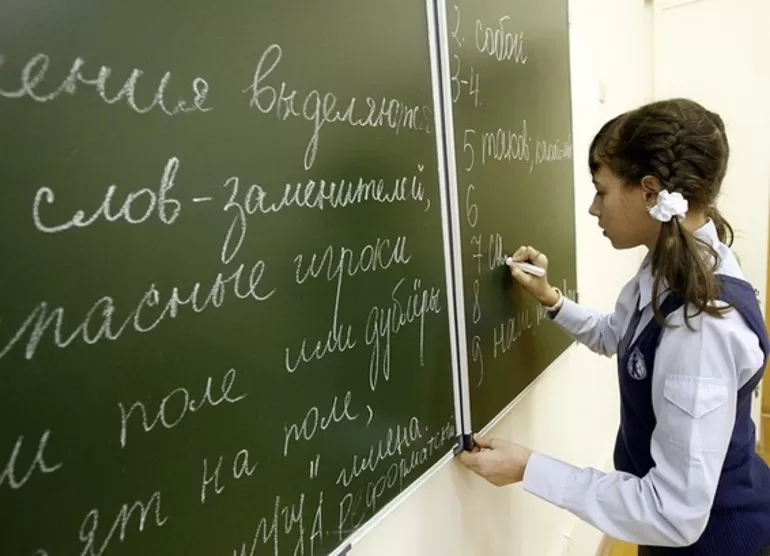 ения выделяются
слов-заменителей,
пасные игроки
и поле или дублёры
ят на поле,
имена.
А. Реформатский
2. собой
3-4.
5 таков;
6
7 са
8
9 нам